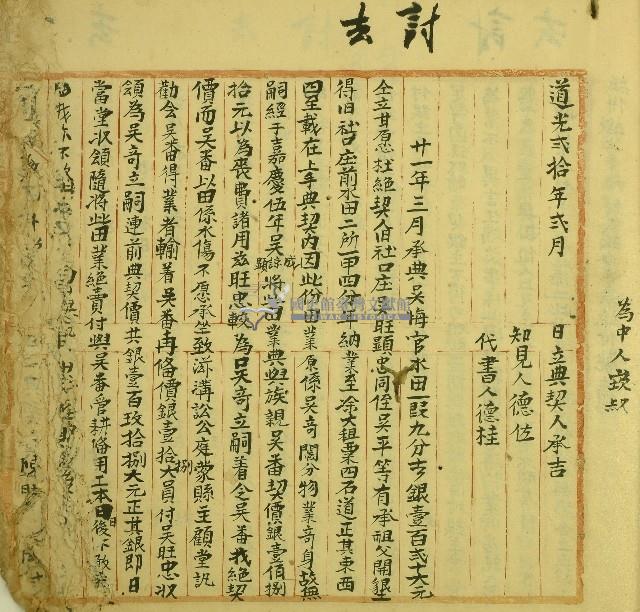 討去
為中人啟叔
道光弍拾年弍月　日立典契人承吉
知見人德佐
代書人德桂
廿一年三月承典吳海官水田一段九分去銀壹百弍十六元
仝立甘愿杜絕契人旧社口庄吳旺顕忠同侄吳平等有承祖父開墾
得旧社口庄前水田二所一甲四分年納業主涂大租粟四石道正其東西
四至載在上手典契內因此份田業原係吳奇鬮分物業奇身故無
嗣經于嘉慶伍年吳成諒顕將此田業典與族親吳番契價銀壹佰捌
拾元以為喪費諸用茲旺忠較為吳奇立嗣着令吳番找絕契
價而吳番以田係水傷不愿承坐致滋溝訟公庭蒙縣主顧堂訊
勸会吳番得業者輸着吳番再俻價銀壹拾捌大員付吳旺忠收
領為吳奇立嗣連前典契價共銀壹百玖拾捌大元正其銀即日
當堂收領隨將此田業絕賣付與吳番管耕俻用工本日後不敢
國史館臺灣文獻館
TAIWAN HISTORICA